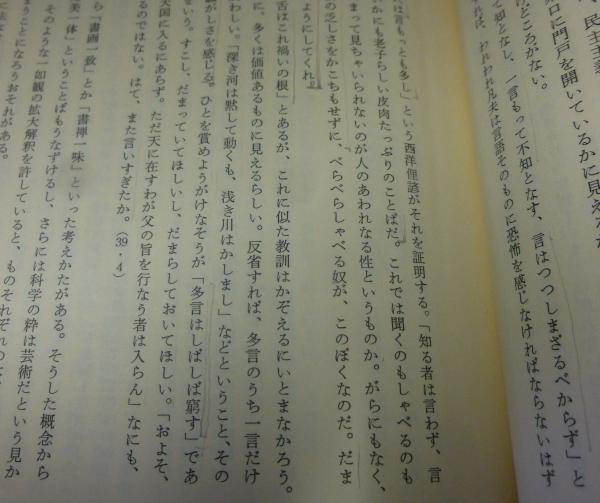 、民主主義
口に門戸を開いているかに見える
どころがない。
て知となし、一言もって不知となす、言はつつしまざるべからず」と
れば、われわれ凡夫は言語そのものに恐怖を感じなければならないはず
は言もっとも多し」という西洋俚諺がそれを証明する。「知る者は言わず、言
かにも老子らしい皮肉たっぷりのことばだ。これでは聞くのもしゃべるのも
まって見ちゃいられないのが人のあわれなる性というものか。がらにもなく、
の乏しさをかこちもせずに、べらべらしゃべる奴が、このぼくなのだ。だま
ようにしてくれ。
舌はこれ禍いの根」とあるが、これに似た教訓はかぞえるにいとまなかろう。
に、多くは価値あるものに見えるらしい。反省すれば、多言のうち一言だけ
わしい。「深き河は黙して動くも、浅き川はかしまし」などということ、その
がしさを感じる。ひとを賞めようがけなそうが「多言はしばしば窮す」であ
いう。すこし、だまっていてほしいし、だまらしておいてほしい。「およそ、
天国に入るにあらず。ただ天に在すわが父の旨を行なう者は入らん」なにも、
るのではない。はて、また言いすぎたか。（39・4）
ら「書画一致」とか「書禅一味」といった考えかたがある。そうした概念から
美一体」ということばもうなずけるし、さらには科学の粋は芸術だという見か
そのような一如観の拡大解釈を許していると、ものそれぞれの
ことになろうおそれがある。